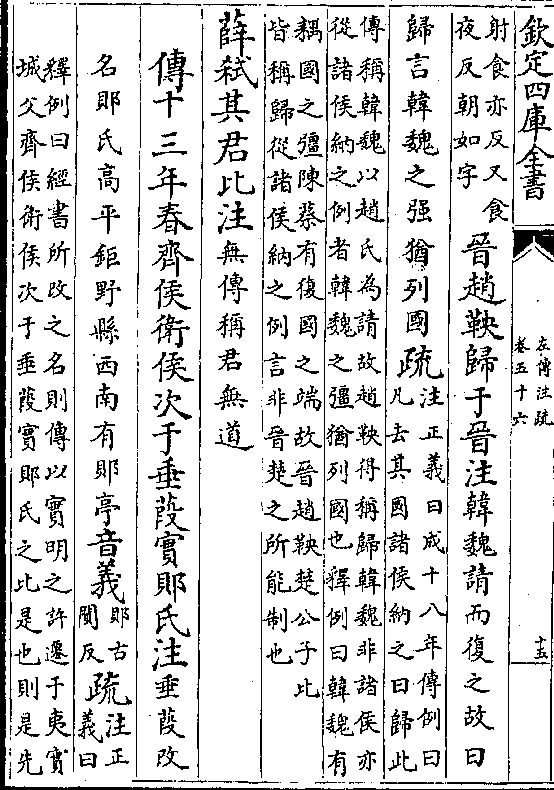 欽定四庫全書
左傳注疏
卷五十六
十五
射食亦反又食
夜反朝如字
晉趙鞅歸于晉注韓魏請而復之故曰
歸言韓魏之强猶列國疏
注正義曰成十八年傳例曰
凡去其國諸侯納之曰歸此
傳稱韓魏以趙氏為請故趙鞅得稱歸韓魏非諸侯亦
從諸侯納之例者韓魏之彊猶列國也釋例曰韓魏有
耦國之彊陳蔡有復國之端故晉趙鞅楚公子比
皆稱歸從諸侯納之例言非晉楚之所能制也
薛弑其君比注無傳稱君無道
傳十三年春齊侯衛侯次于垂葭實郹氏注垂葭改
名郹氏高平鉅野縣西南有郹亭音義
郹古
閴反
疏
注正
義曰
釋例曰經書所改之名則傳以實明之許遷于夷實
城父齊侯衛侯次于垂葭實郹氏之比是也則是先